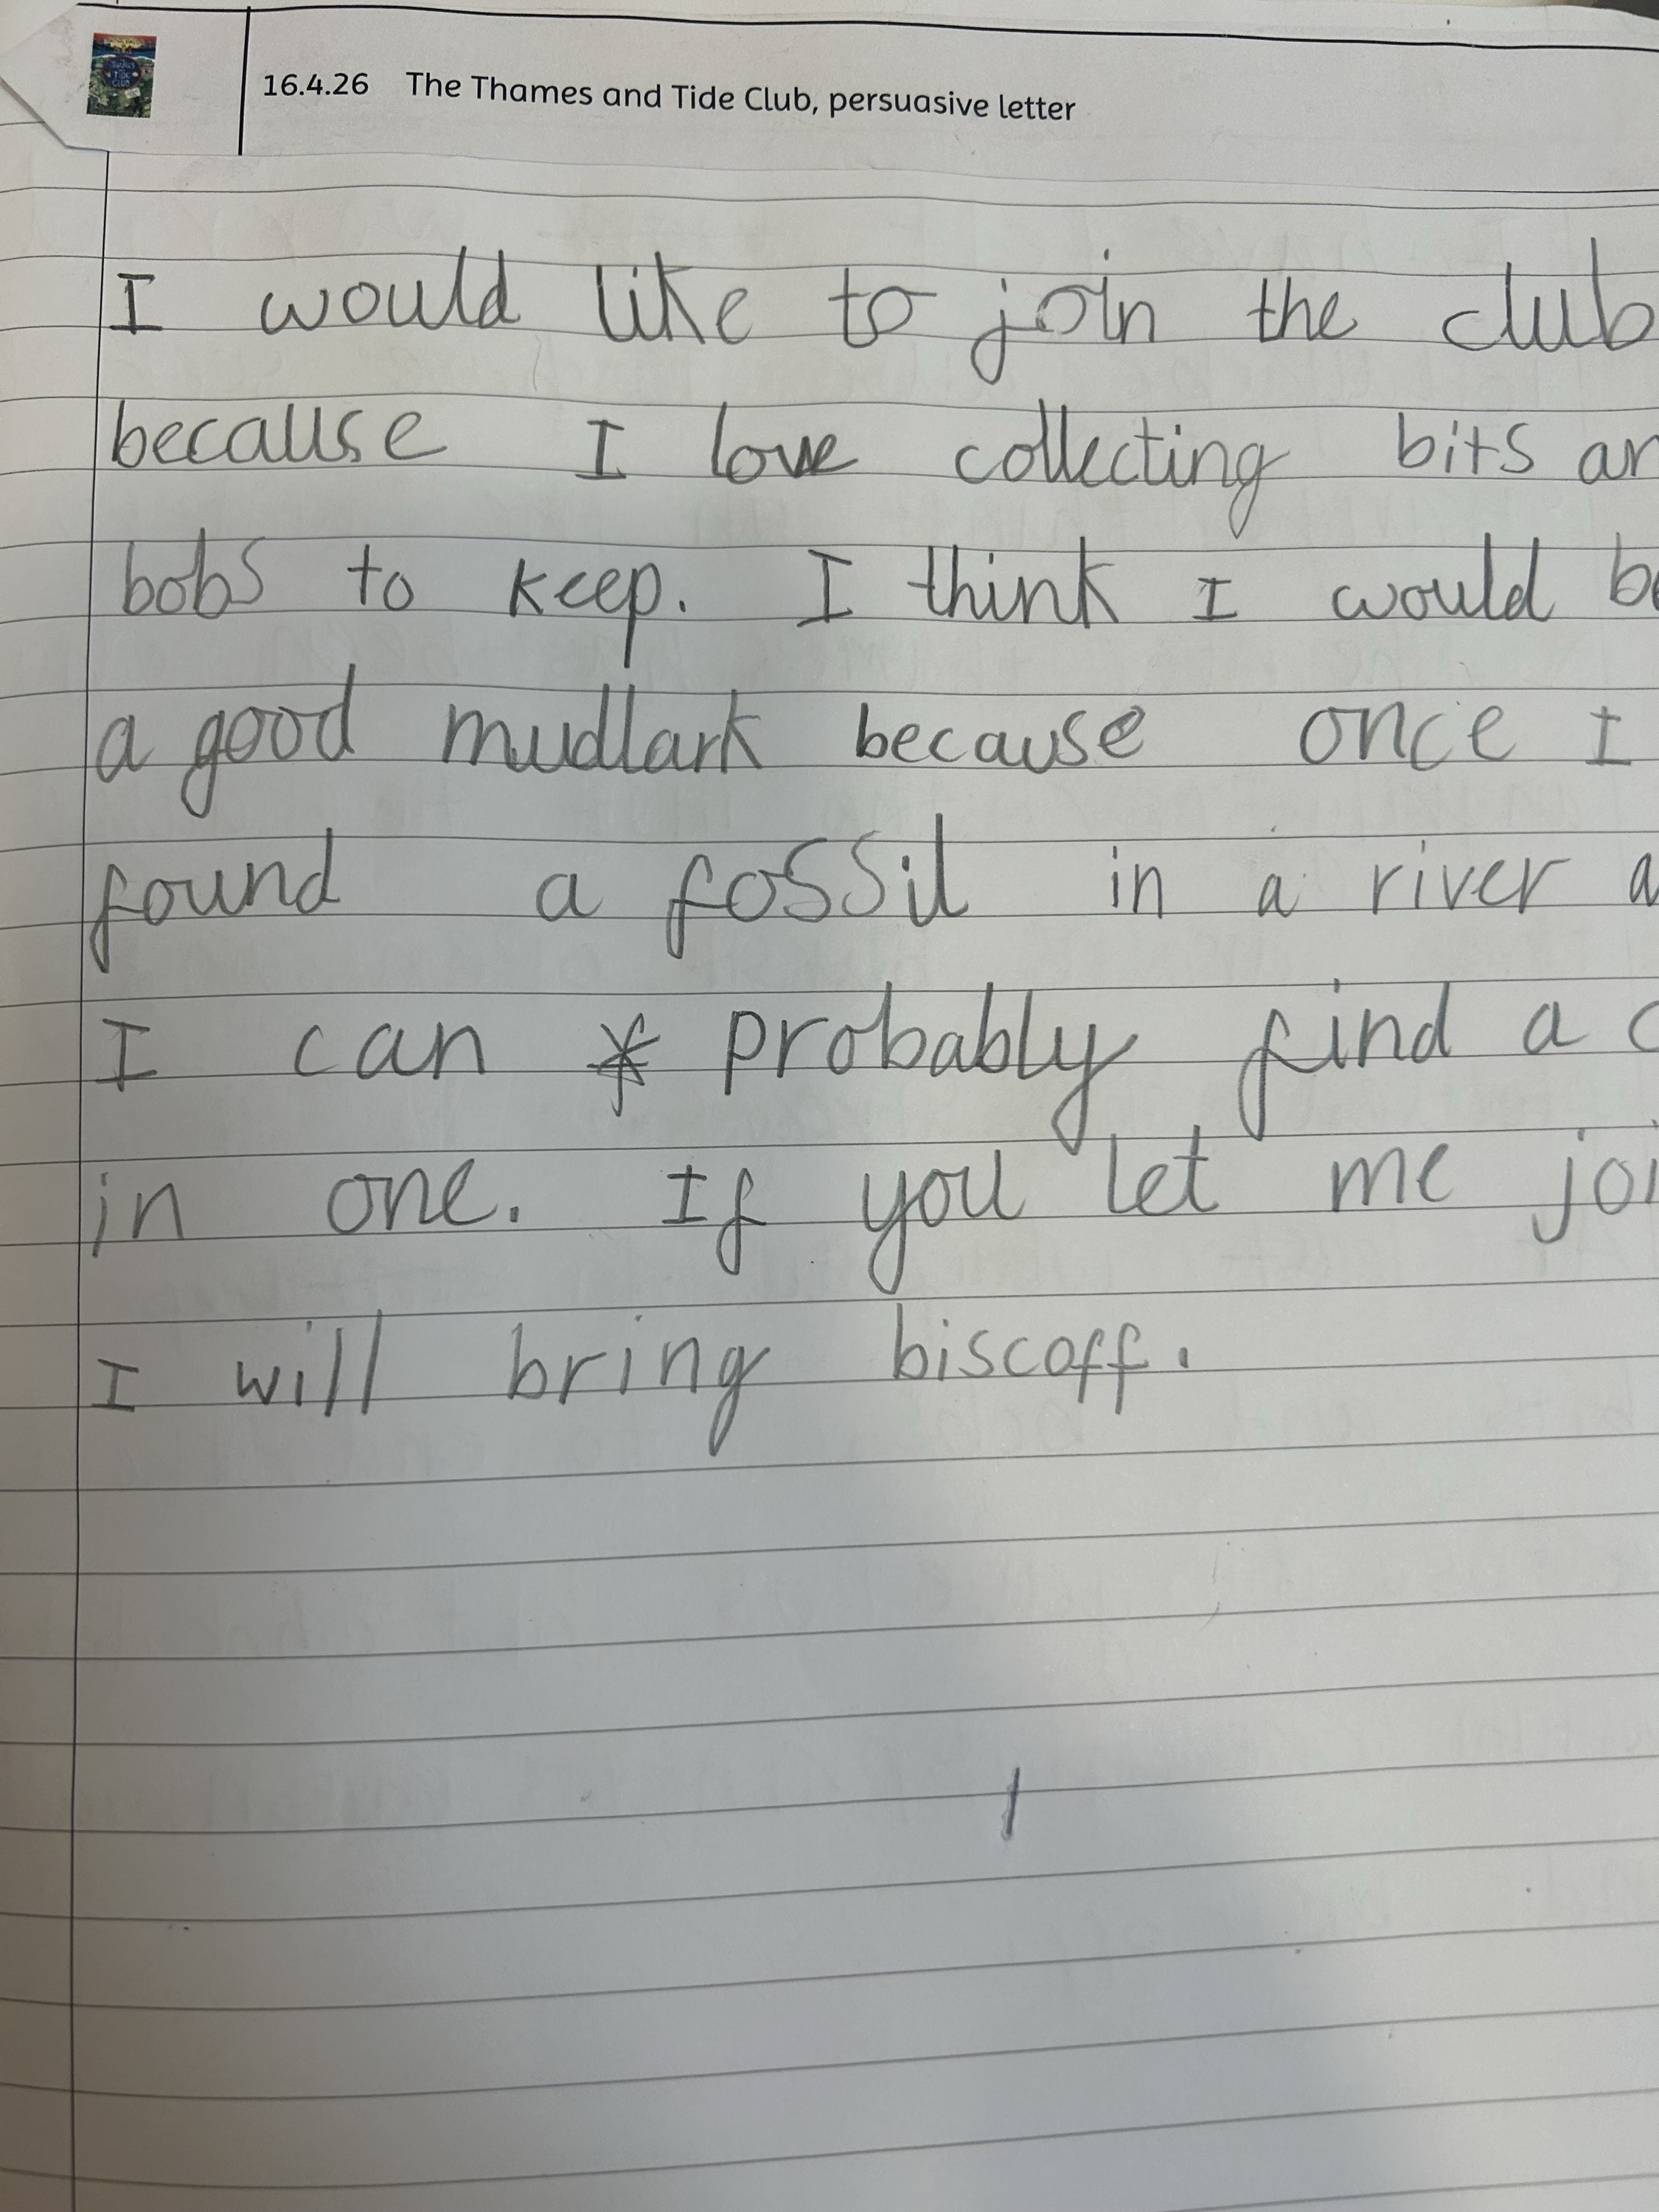 16.4.26 The Thames and Tide Club, persuasive letter
I would like to join the club
because I love collecting bits
bobs to keep. I think I would
a good mudlark because once I
found a fossil in a river
I can probably find a
in one. If you let me
I will bring biscoff.